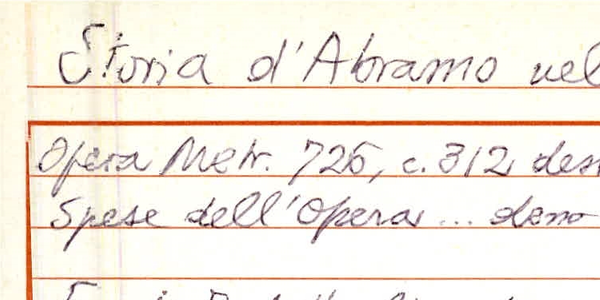 Storia d'Abramo nel
Opera Metr. 725, c. 312 des
Spese dell'Opera ... deno